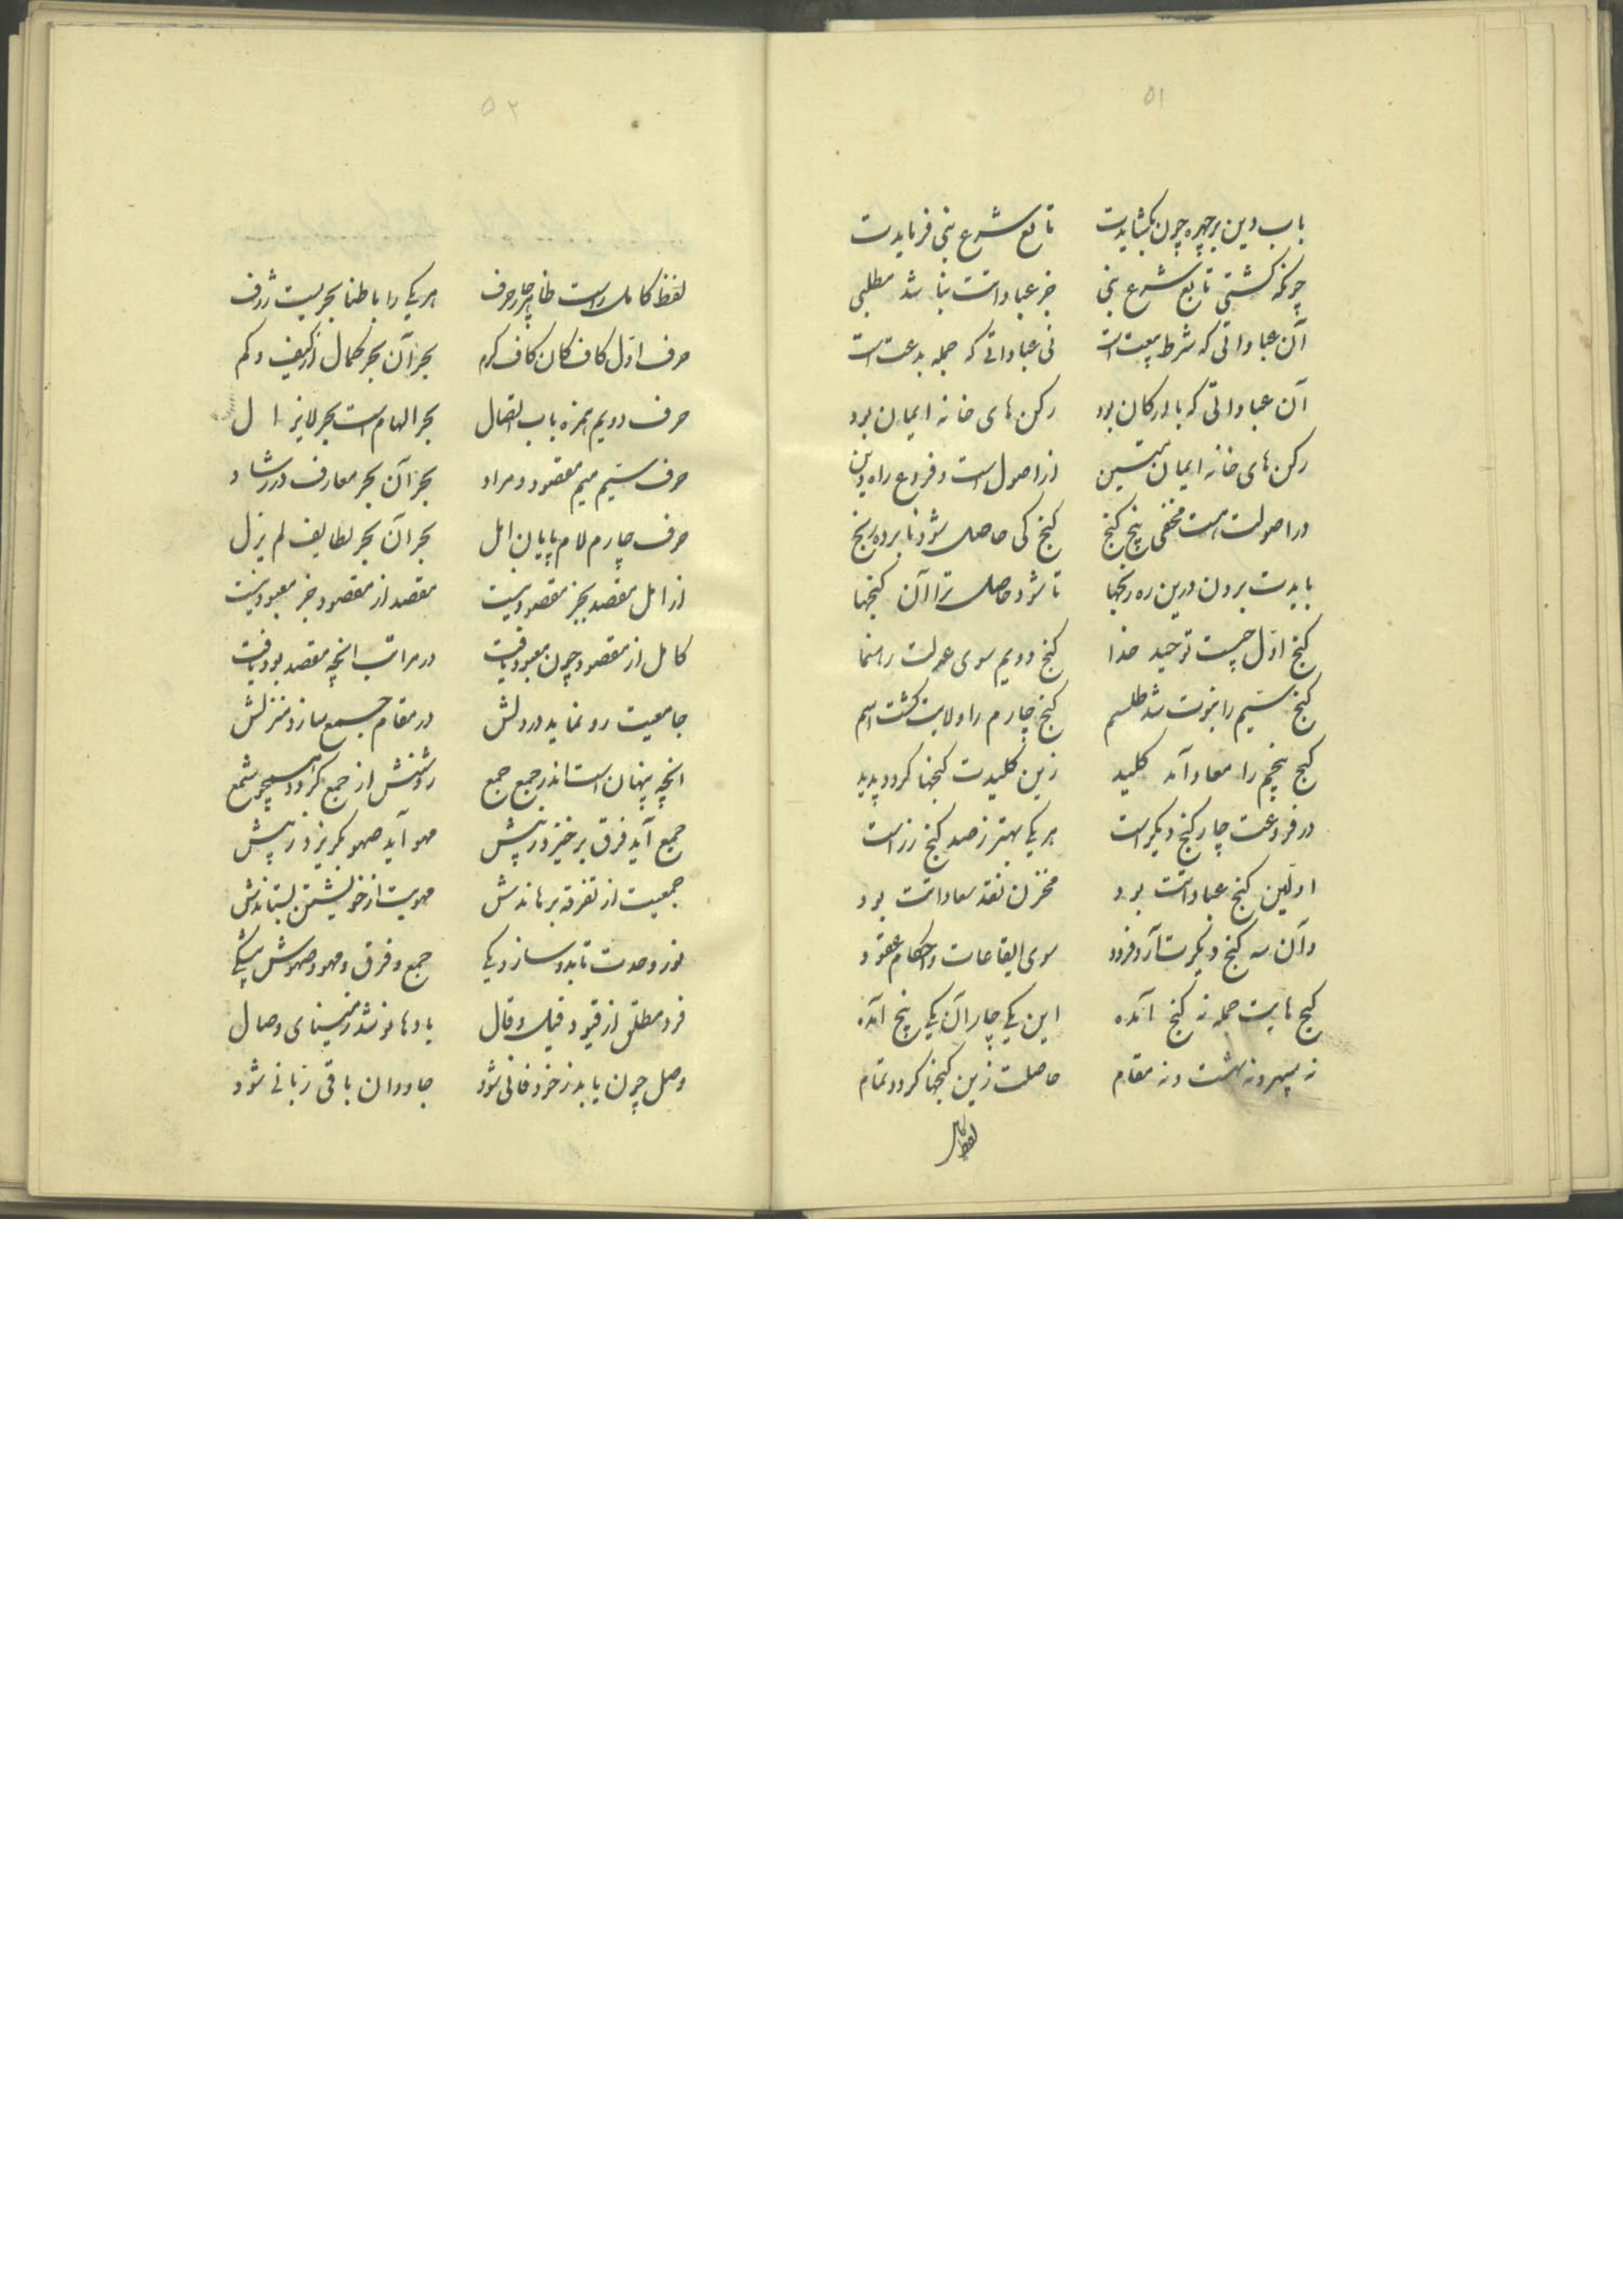 ۵۱
باب دین بر چهره چون بکشایدت تابع شرع نبی فرمایدت
چونکه کشتی تابع شرع نبی جز عباداتت نباشد مطلبی
آن عباداتی که شرط بیعت است نی عباداتی که جمله بدعت است
آن عباداتی که با ارکان بود رکن های خانه ایمان بود
رکن های خانه ایمان متین از اصول است و فروع راه دین
در اصولت هست مخفی پنج کنج کنج کی حاصل شود نابرده رنج
بایدت بردن درین ره رنجها تا شود حاصل ترا آن کنجها
کنج اول چیست توحید خدا کنج دویم سوی عدلت رهنما
کنج سیم را نبوت شد طلسم کنج چارم را ولایت کشت اسم
کنج پنجم را معاد آمد کلید زین کلیدت کنجها کردد پدید
در فروعت چار کنج دیکر است هر یکی بهتر ز صد کنج زر است
اولین کنج عباداتت بود مخزن نقد سعاداتت بود
وآن سه کنج دیکرت آرد فرود سوی ایقاعات و احکام عقود
کنج هایت جمله نه کنج آمده این یکی چار آن یکی پنج آمده
نه سپهر و نه بهشت و نه مقام حاصلت زین کنجها کردد تمام
لفظ کامل
۵۲
لفظ کامل راست ظاهر چار حرف هر یکی را باطنا بحریست ژرف
حرف اول کاف کان کاف کرم بحر آن بحر کمال از کیف و کم
حرف دویم همزه باب اتصال بحر الهام است بحر لایزال
حرف سیم میم مقصود و مراد بحر آن بحر معارف در رشاد
حرف چارم لام پایان امل بحر آن بحر لطایف لم یزل
از امل مقصد بجز مقصود نیست مقصد از مقصود جز معبود نیست
کامل از مقصود چون معبود یافت در مراتب انچه مقصد بود یافت
جامعیت رو نماید در دلش در مقام جمع سازد منزلش
انچه پنهان است اندر جمع جمع روشنش از جمع کردد همچو شمع
جمع آید فرق برخیزد ز پیش مهو آید صهو بکریزد ز پیش
جمعیت از تفرقه برهاندش مهویت از خویشتن بستاندش
نور وحدت تابد و سازد یکی جمع و فرق و مهو و صهوش بیشکی
فرد مطلق از قیود قیل و قال باده نوشد ز مینای وصال
وصل چون یابد ز خود فانی شود جاودان باقی ربانی شود